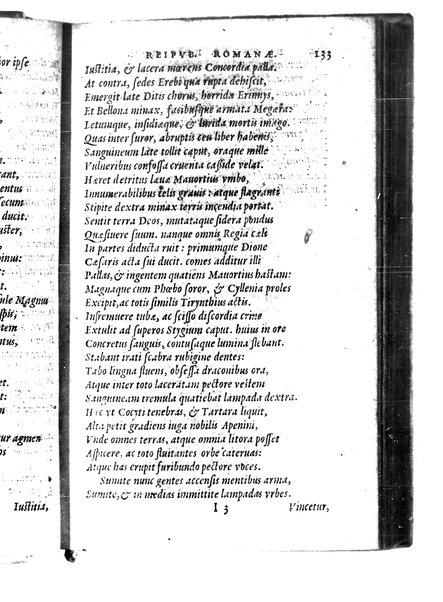 or ipse
ant,
entus
secum
ducit.
uster,
ule Magnu
spis;
tem
tur agmen
Iustitia,
REIPVB. ROMANÆ. 133
Iustitia, & lacera mœrens Concordia palla.
At contra, sedes Erebi qua rupta dehiscit,
Emergit late Ditis chorus, horrida Erinnys,
Et Bellona minax, facibusque armata Megæra:
Letumque, insidiæque, & lurida mortis imago.
Quas inter furor, abruptis ceu liber habenis,
Sanguineum late tollit caput, oraque mille
Vulneribus confossa cruenta casside velat.
Hæret detritus læuæ Mauortius vmbo,
Innumerabilibus telis grauis: atque flagranti
Stipite dextra minax terris incendia portat.
Sentit terra Deos, mutataque sidera pondus
Quæsiuere suum. nanque omnis Regia cæli
In partes diducta ruit: primumque Dione
Cæsaris acta sui ducit. comes additur illi
Pallas, & ingentem quatiens Mauortius hastam:
Magnaque cum Phœbo soror, & Cyllenia proles
Excipit, ac totis similis Tirynthius actis.
Infremuere tubæ, ac scisso discordia crine
Extulit ad superos Stygium caput. huius in ore
Concretus sanguis, contusaque lumina flebant.
Stabant irati scabra rubigine dentes:
Tabo lingua fluens, obsessa draconibus ora,
Atque inter toto laceratam pectore vestem
Sanguineam tremula quatiebat lampada dextra.
Hæc vt Cocyti tenebras, & Tartara liquit,
Alta petit gradiens iuga nobilis Apenini,
Vnde omnes terras, atque omnia litora posset
Aspicere, ac toto fluitantes orbe cateruas:
Atque has erupit furibundo pectore voces.
Sumite nunc gentes accensis mentibus arma,
Sumite, & in medias immittite lampadas vrbes.
I 3 Vincetur,